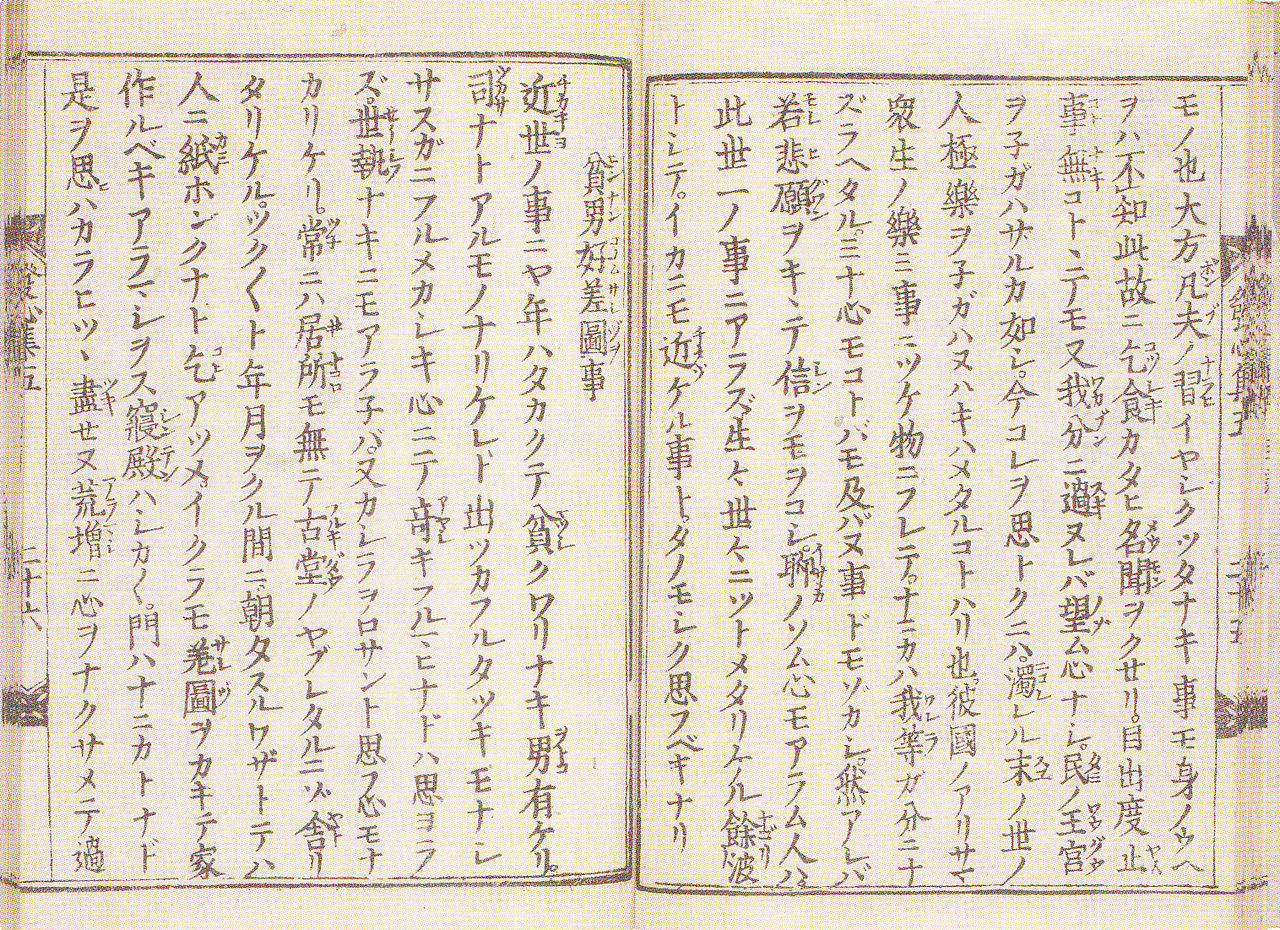 モノ也大方凡夫ノ習イヤシクツタナキ事モ身ノウヘ
ヲハ不知此故ニ乞食カタヒ名聞ヲクサリ。目出度止
事無コトヽニテモ又我分ニ過ヌレバ望ム心ナシ。民ノ王宮
ヲ子ガハザルカ如シ。今コレヲ思トクニハ。濁レル末ノ世ノ
人極樂ヲ子ガハヌハキハメタルコトハリ也。彼國ノアリサマ
衆生ノ樂ミ事ニツケ物ニフレテ。ナニカハ我等ガ分ニナ
ズラヘタル。ミナ心モコトバモ及バヌ事ドモゾカシ。然アレバ
若悲願ヲキヽテ信ヲモヲコシ。聊ノソム心モアラム人ハ
此世一ノ事ニアラズ。生々世々ニツトメタリケル餘波
トシテ。イカニモ近ケル事ト。タノモシク思フベキナリ
貧男好差圖事
近世ノ事ニヤ年ハタカクテ貧クワリナキ男有ケリ。
司ナトアルモノナリケレド出ツカフルタツキモナシ
サスガニフルメカシキ心ニテ奇キフルマヒナドハ思ヨラ
ズ。世執ナキニモアラ子バ。又カシラヲロサント思フ心モナ
カリケリ。常ニハ居所モ無テ古堂ノヤブレタルニゾ舎リ
タリケル。ツク〲ト年月ヲクル間ニ。朝タスルワザトテハ
人ニ紙ホンクナト乞アツメ。イクラモ差圖ヲカキテ家
作ルベキアラマシヲス寢殿ハシカ〱。門ハナニカトナド
是ヲ思ハカラヒツヽ盡せヌ荒増ニ心ヲナクサメテ過
發心集五
二十六
二十五